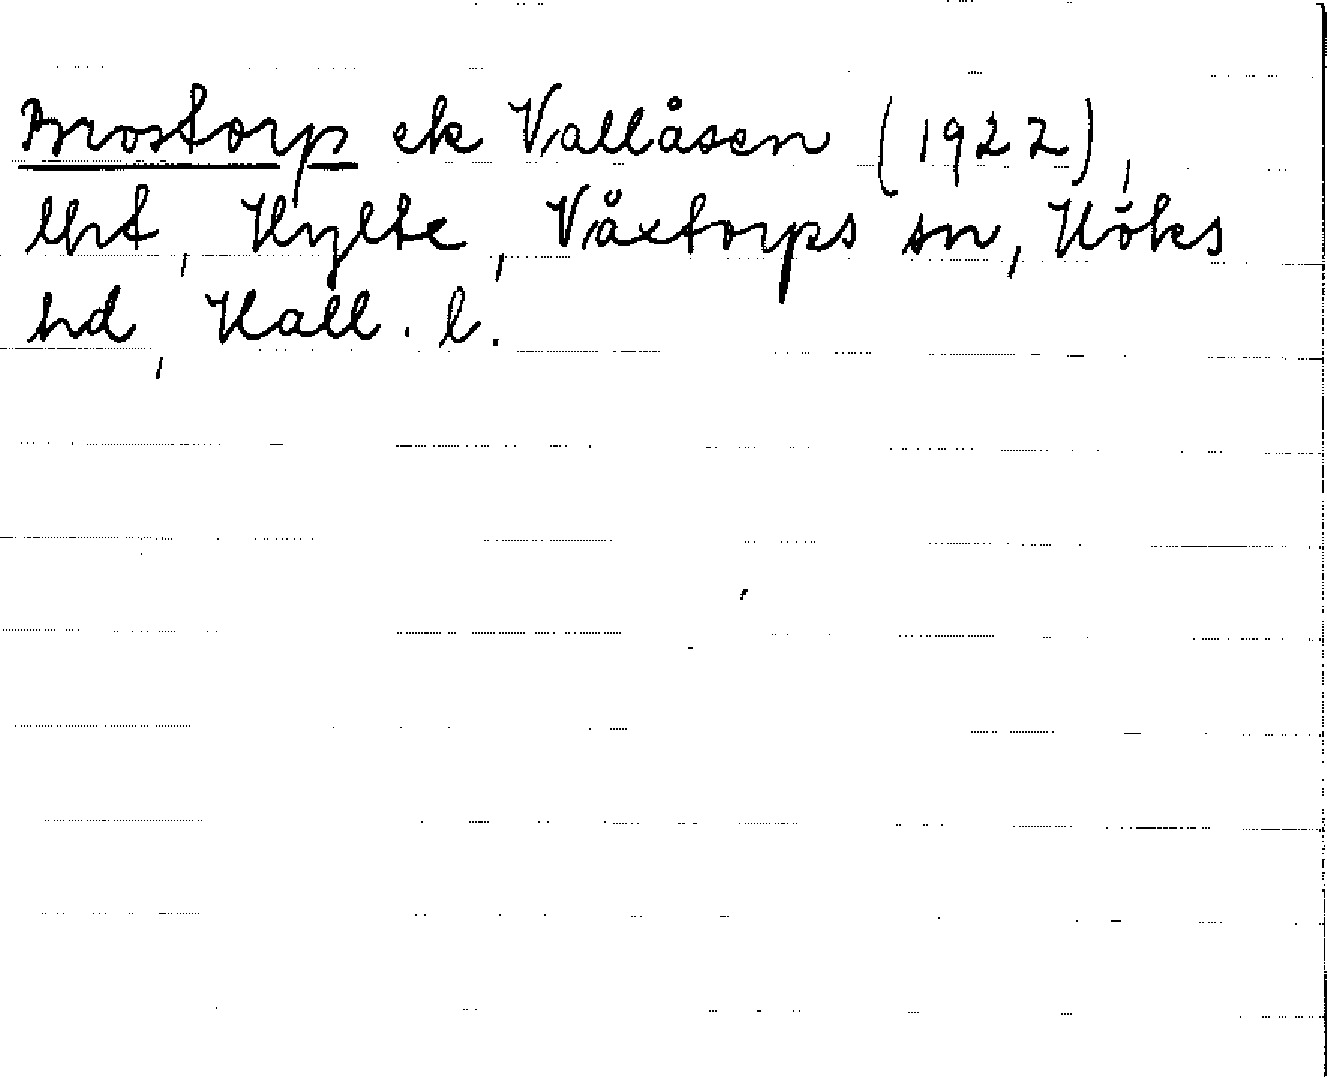 Brostorp ek Vallåsen (1922),
lht, Hylte, Våxtorps sn, Höks
hd, Hall. l.